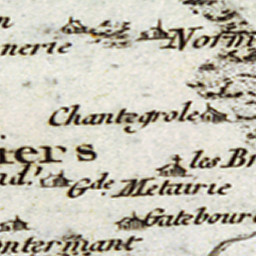 n
nerie
Norm
Chantegrole
iers
les Br
ud.t
Gde. Metairie
Gatebour
ontermant